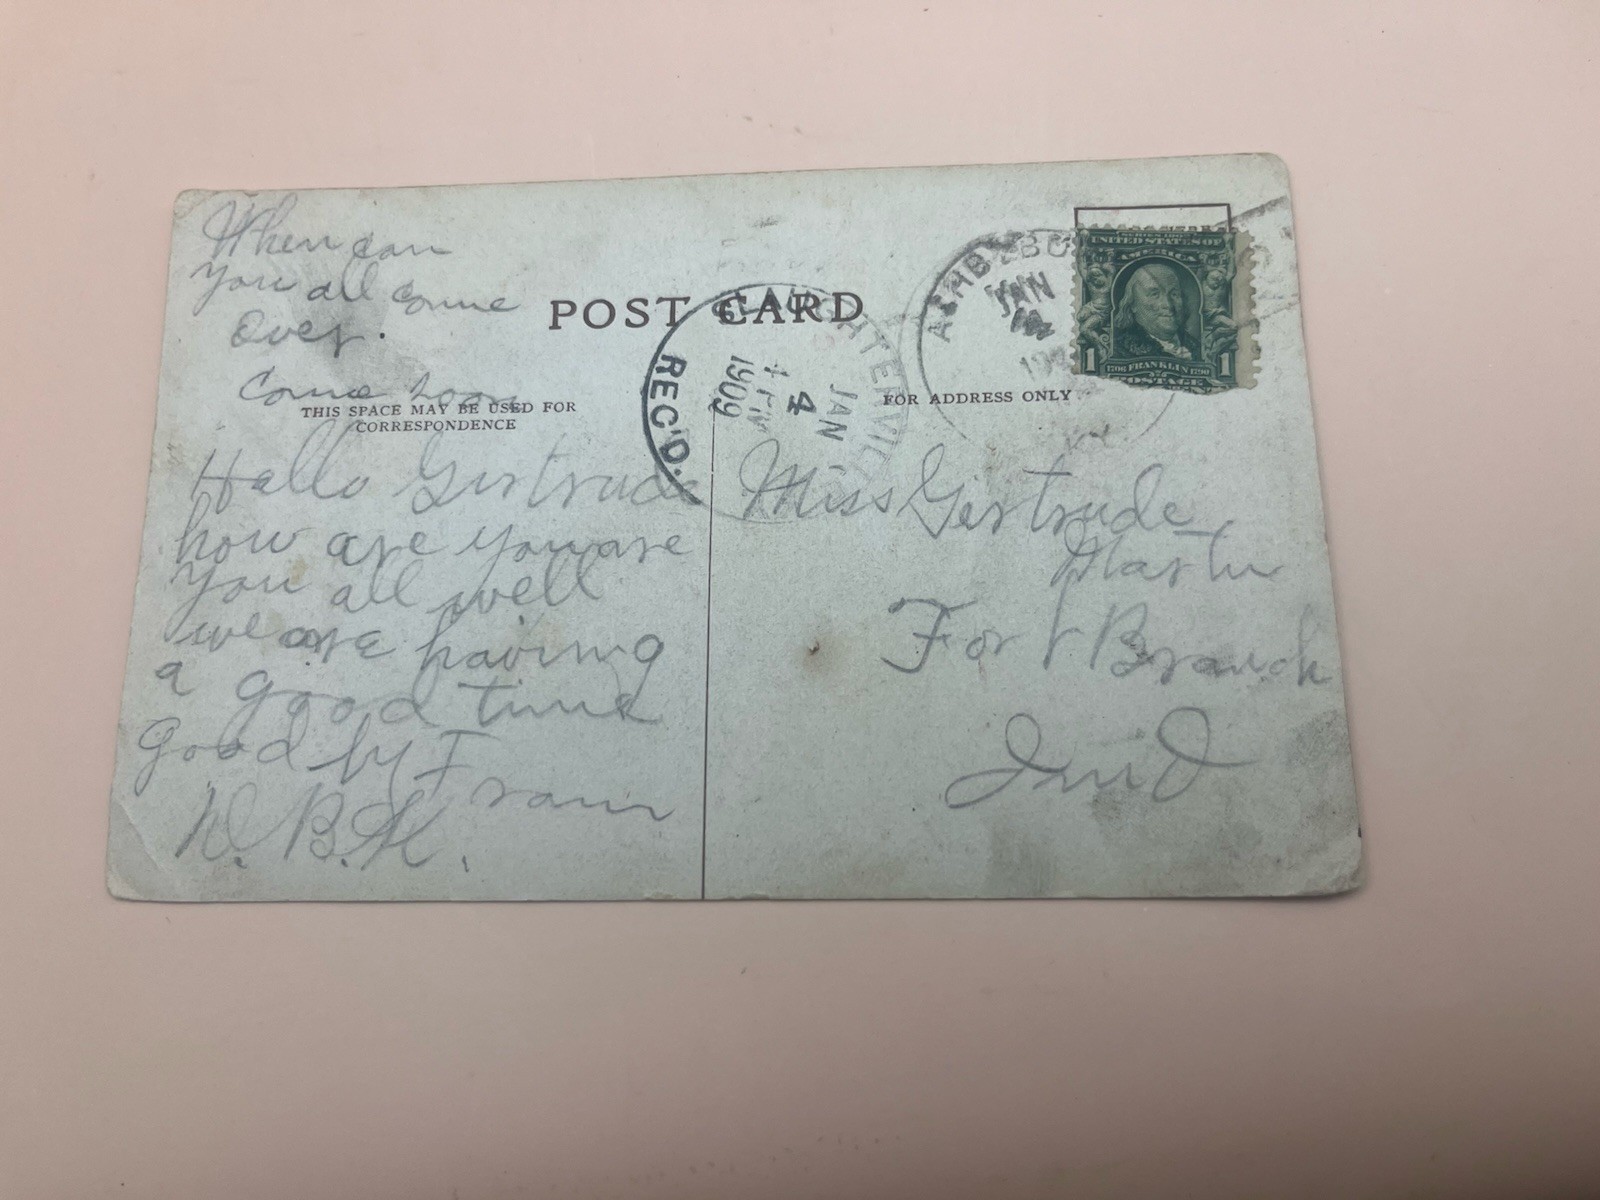 When can
you all come
over.
Come soon
POST CARD
THIS SPACE MAY BE USED FOR
CORRESPONDENCE
FOR ADDRESS ONLY
Hallo Gertrude
how are you are
you all well
we are having
a good time
good by Fram
W. B. H.
Miss Gertrude
Fort Branch
Ind
REC'D.
JAN
4
1909
JAN
SERIES 1902
UNITED STATES OF
AMERICA
1 1
1706 FRANKLIN 1790
POSTAGE